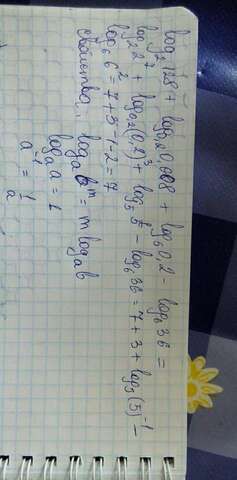 log₂128 + log₀,₂0,008 + log₅0,2 - log₆36 =
log₂2⁷ + log₀,₂(0,2)³ + log₅ 1/5 - log₆36 = 7 + 3 + log₅(5)⁻¹ -
log₆6² = 7 + 3 - 1 - 2 = 7
свойства: logₐbᵐ = m logₐb
logₐa = 1
a⁻¹ = 1/a